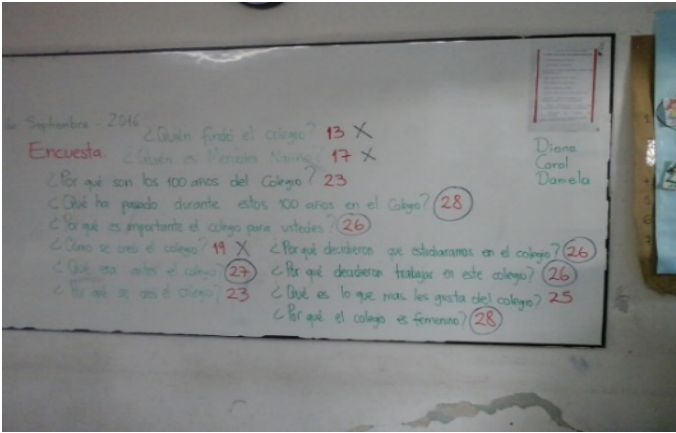 de Septiembre 2016
¿Quién fundó el colegio? 13 X
Encuesta ¿Quién es Mercedes Nariño? 17 X
¿Por qué son los 100 años del Colegio? 23
¿Qué ha pasado durante estos 100 años en el Colegio? 28
¿Por qué es importante el colegio para ustedes? 26
¿Cómo se creó el colegio? 19 X
¿Qué era antes el colegio? 27
¿Por qué se creó el colegio? 23
¿Por qué decidieron que estudiaramos en el colegio? 26
¿Por qué decidieron trabajar en este colegio? 26
¿Qué es lo que mas les gusta del colegio? 25
¿Por qué el colegio es femenino? 28
Diana
Carol
Daniela